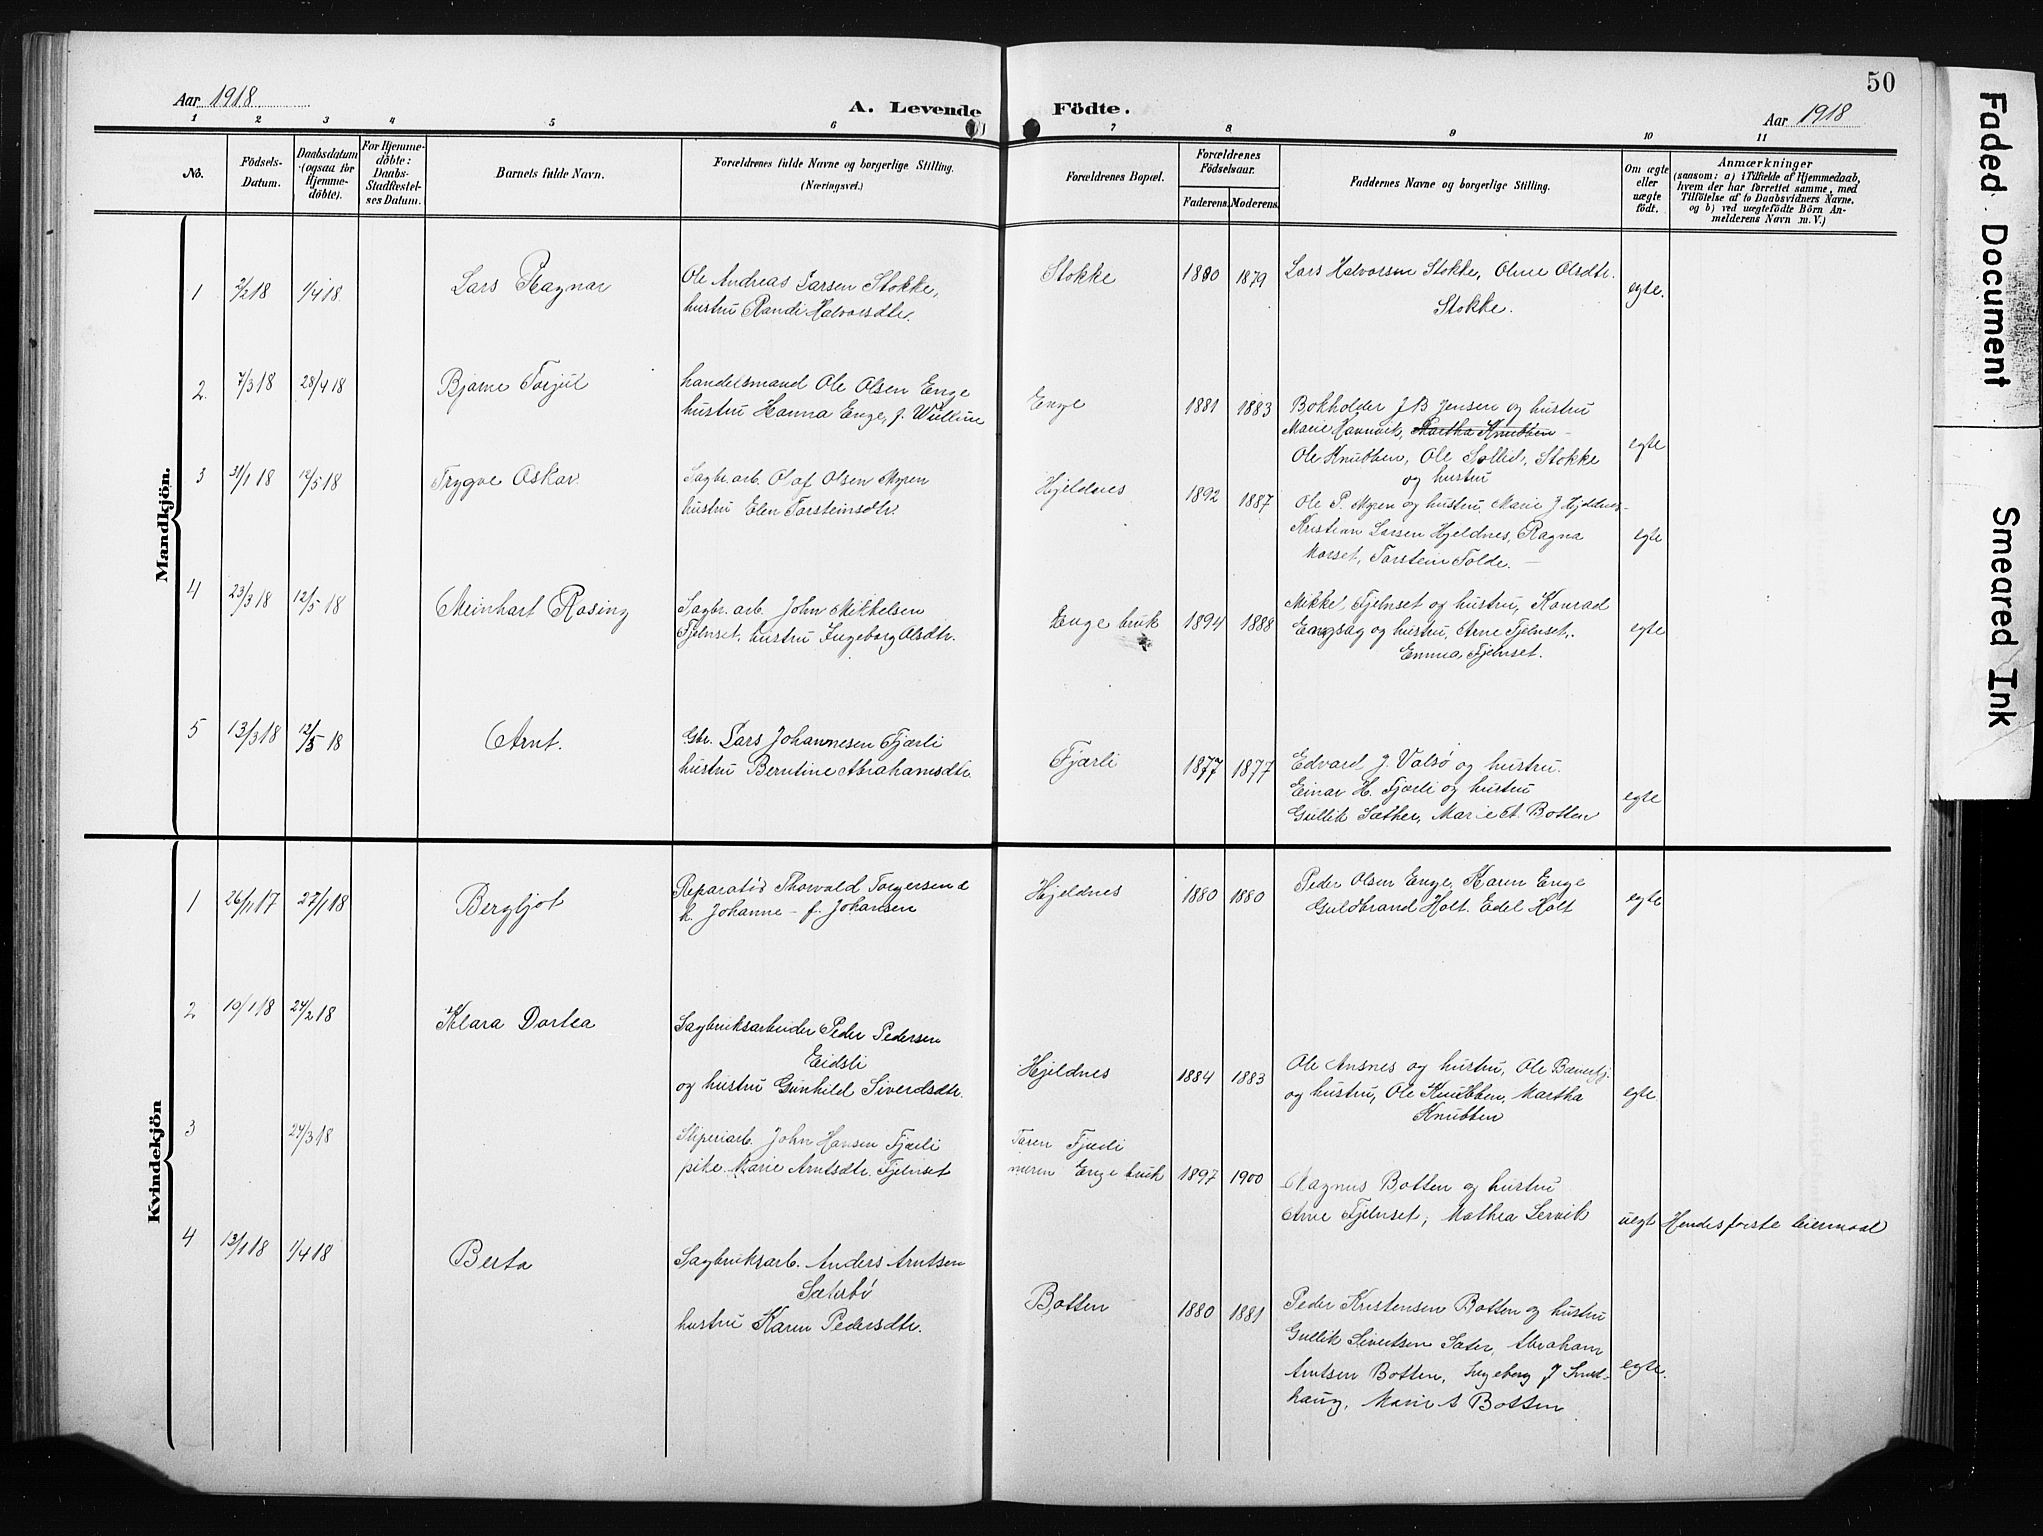 Aar 1918
A. Levende Födte.
Aar 1918
50
1 2 3 4 5 6 7 8 9 10 11
No.
Födsels-
Datum.
Daabsdatum
(ogsaa for
Hjemme-
döbte).
For Hjemme-
döbte:
Daabs-
Stadfæstel-
ses Datum.
Barnets fulde Navn.
Forældrenes fulde Navne og borgerlige Stilling.
(Næringsvei.)
Forældrenes Bopæl.
Forældrenes
Födselsaar.
Faderens. Moderens.
Faddernes Navne og borgerlige Stilling.
Om ægte
eller
uægte
födt.
Anmærkninger
(saasom: a) i Tilfælde af Hjemmedaab,
hvem der har forrettet samme, med
Tilföielse af to Daabsvidners Navne,
og b) ved uægtefödte Börn An-
melderens Navn m. V.)
Mandkjön.
1 2/2 18 1/4 18 Lars Ragnar
Ole Andreas Larsen Stokke,
hustru Randi Halvorsdtr.
Stokke 1880 1879
Lars Halvorsen Stokke, Oline Olsdtr.
Stokke.
egte.
2. 7/3 18 28/4 18 Bjarne Torjul
handelsmand Ole Olsen Enge
hustru Hanna Enge, f.
Enge 1881 1883
Bokholder J B Jensen og hustru
Marie Hamnvik, Martha Knubben -
Ole Knubben, Ole Sollid, Stokke
og hustru
egte
3 31/1 18 12/5 18 Trygve Oskar
Sagbr. arb. Olaf Olsen Myren
hustru Elen Torsteinsdtr.
Hjeldnes 1892 1887
Ole P. Myren og hustru, Marie J Hjeldnes-
Kristian Larsen Hjeldnes, Ragna
Morset, Torstein Tolde. -
egte
4 23/3 18 12/5 18 Meinhart Rosing
Sagbr. arb. John Mikkelsen
Fjelnset, hustru Ingeborg Olsdtr.
Enge bruk 1894 1888
Mikkel Fjelnset og hustru, Konrad
Engsag og hustru, Arne Fjelnset,
Emma Fjelnset.
egte
5 13/3 18 12/5 18 Arnt.
Gbr. Lars Johannesen Fjærli
hustru Berntine Abrahamsdtr.
Fjærli 1877 1877
Edvard J. Valsø og hustru.
Einar H. Fjærli og hustru
Gullik Sæther, Marie A. Botten
egte
Kvindekjön
1 26/11 17 27/1 18 Bergljot
Reparatør Thorvald Torgersen &
h. Johanne - f. Johansen
Hjeldnes 1880 1880
Peder Olsen Enge, Karen Enge
Guldbrand Holt. Edel Holt
egte
2 10/1 18 24/2 18 Klara Dortea
Sagbruksarbeider Peder Pedersen
Eidsli
og hustru Gunhild Siverdsdtr.
Hjeldnes 1884 1883
Ole Ansnes og hustru, Ole
og hustru, Ole Knubben, Martha
Knubben
egte
3 24/3 18
Sliperiarb. John Hansen Fjærli
pike. Marie Arntsdtr. Fjelnset
Faren Fjærli
moren Enge bruk
1897 1900
Magnus Botten og hustru
Arne Fjelnset, Mathea Lervik
uegt Hendes første leiermaal
4 13/1 18 1/4 18 Berta
Sagbruksarb. Anders Arntsen
Sæterbø
hustru Karen Pedersdtr.
Botten 1880 1881
Peder Kristensen Botten og hustru
Gullik Sivertsen Sæter, Abraham
Arntsen Botten, Ingeborg J Smed-
haug, Marie A Botten
egte.
Faded Document
Smeared Ink